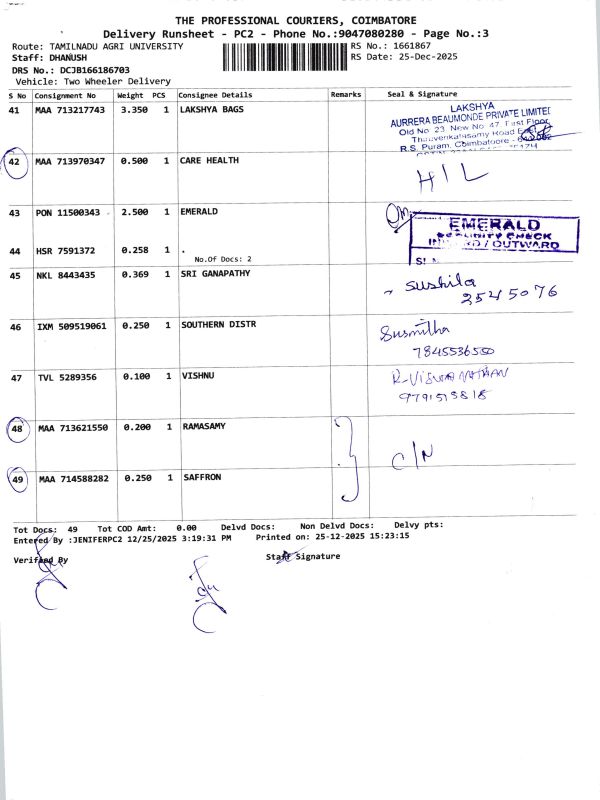 THE PROFESSIONAL COURIERS, COIMBATORE
Delivery Runsheet - PC2 - Phone No.:9047080280 - Page No.:3
Route: TAMILNADU AGRI UNIVERSITY RS No.: 1661867
Staff: DHANUSH RS Date: 25-Dec-2025
DRS No.: DCJB166186703
Vehicle: Two Wheeler Delivery
S No Consignment No Weight PCS Consignee Details Remarks Seal & Signature
41 MAA 713217743 3.350 1 LAKSHYA BAGS
LAKSHYA
AURRERA BEAUMONDE PRIVATE LIMITED
Old No. 23, New No. 47, First Floor,
Thiruvenkatasamy Road East
R.S. Puram, Coimbatore -
42 MAA 713970347 0.500 1 CARE HEALTH HIL
43 PON 11500343 2.500 1 EMERALD
EMERALD
SECURITY CHECK
INWARD / OUTWARD
44 HSR 7591372 0.258 1 .
No.Of Docs: 2
45 NKL 8443435 0.369 1 SRI GANAPATHY Sushila
2545076
46 IXM 509519061 0.250 1 SOUTHERN DISTR Susmitha
7845536550
47 TVL 5289356 0.100 1 VISHNU R-VISWANATHAN
48 MAA 713621550 0.200 1 RAMASAMY
C/N
49 MAA 714588282 0.250 1 SAFFRON
Tot Docs: 49 Tot COD Amt: 0.00 Delvd Docs: Non Delvd Docs: Delvy pts:
Entered By :JENIFERPC2 12/25/2025 3:19:31 PM Printed on: 25-12-2025 15:23:15
Verified By Staff Signature